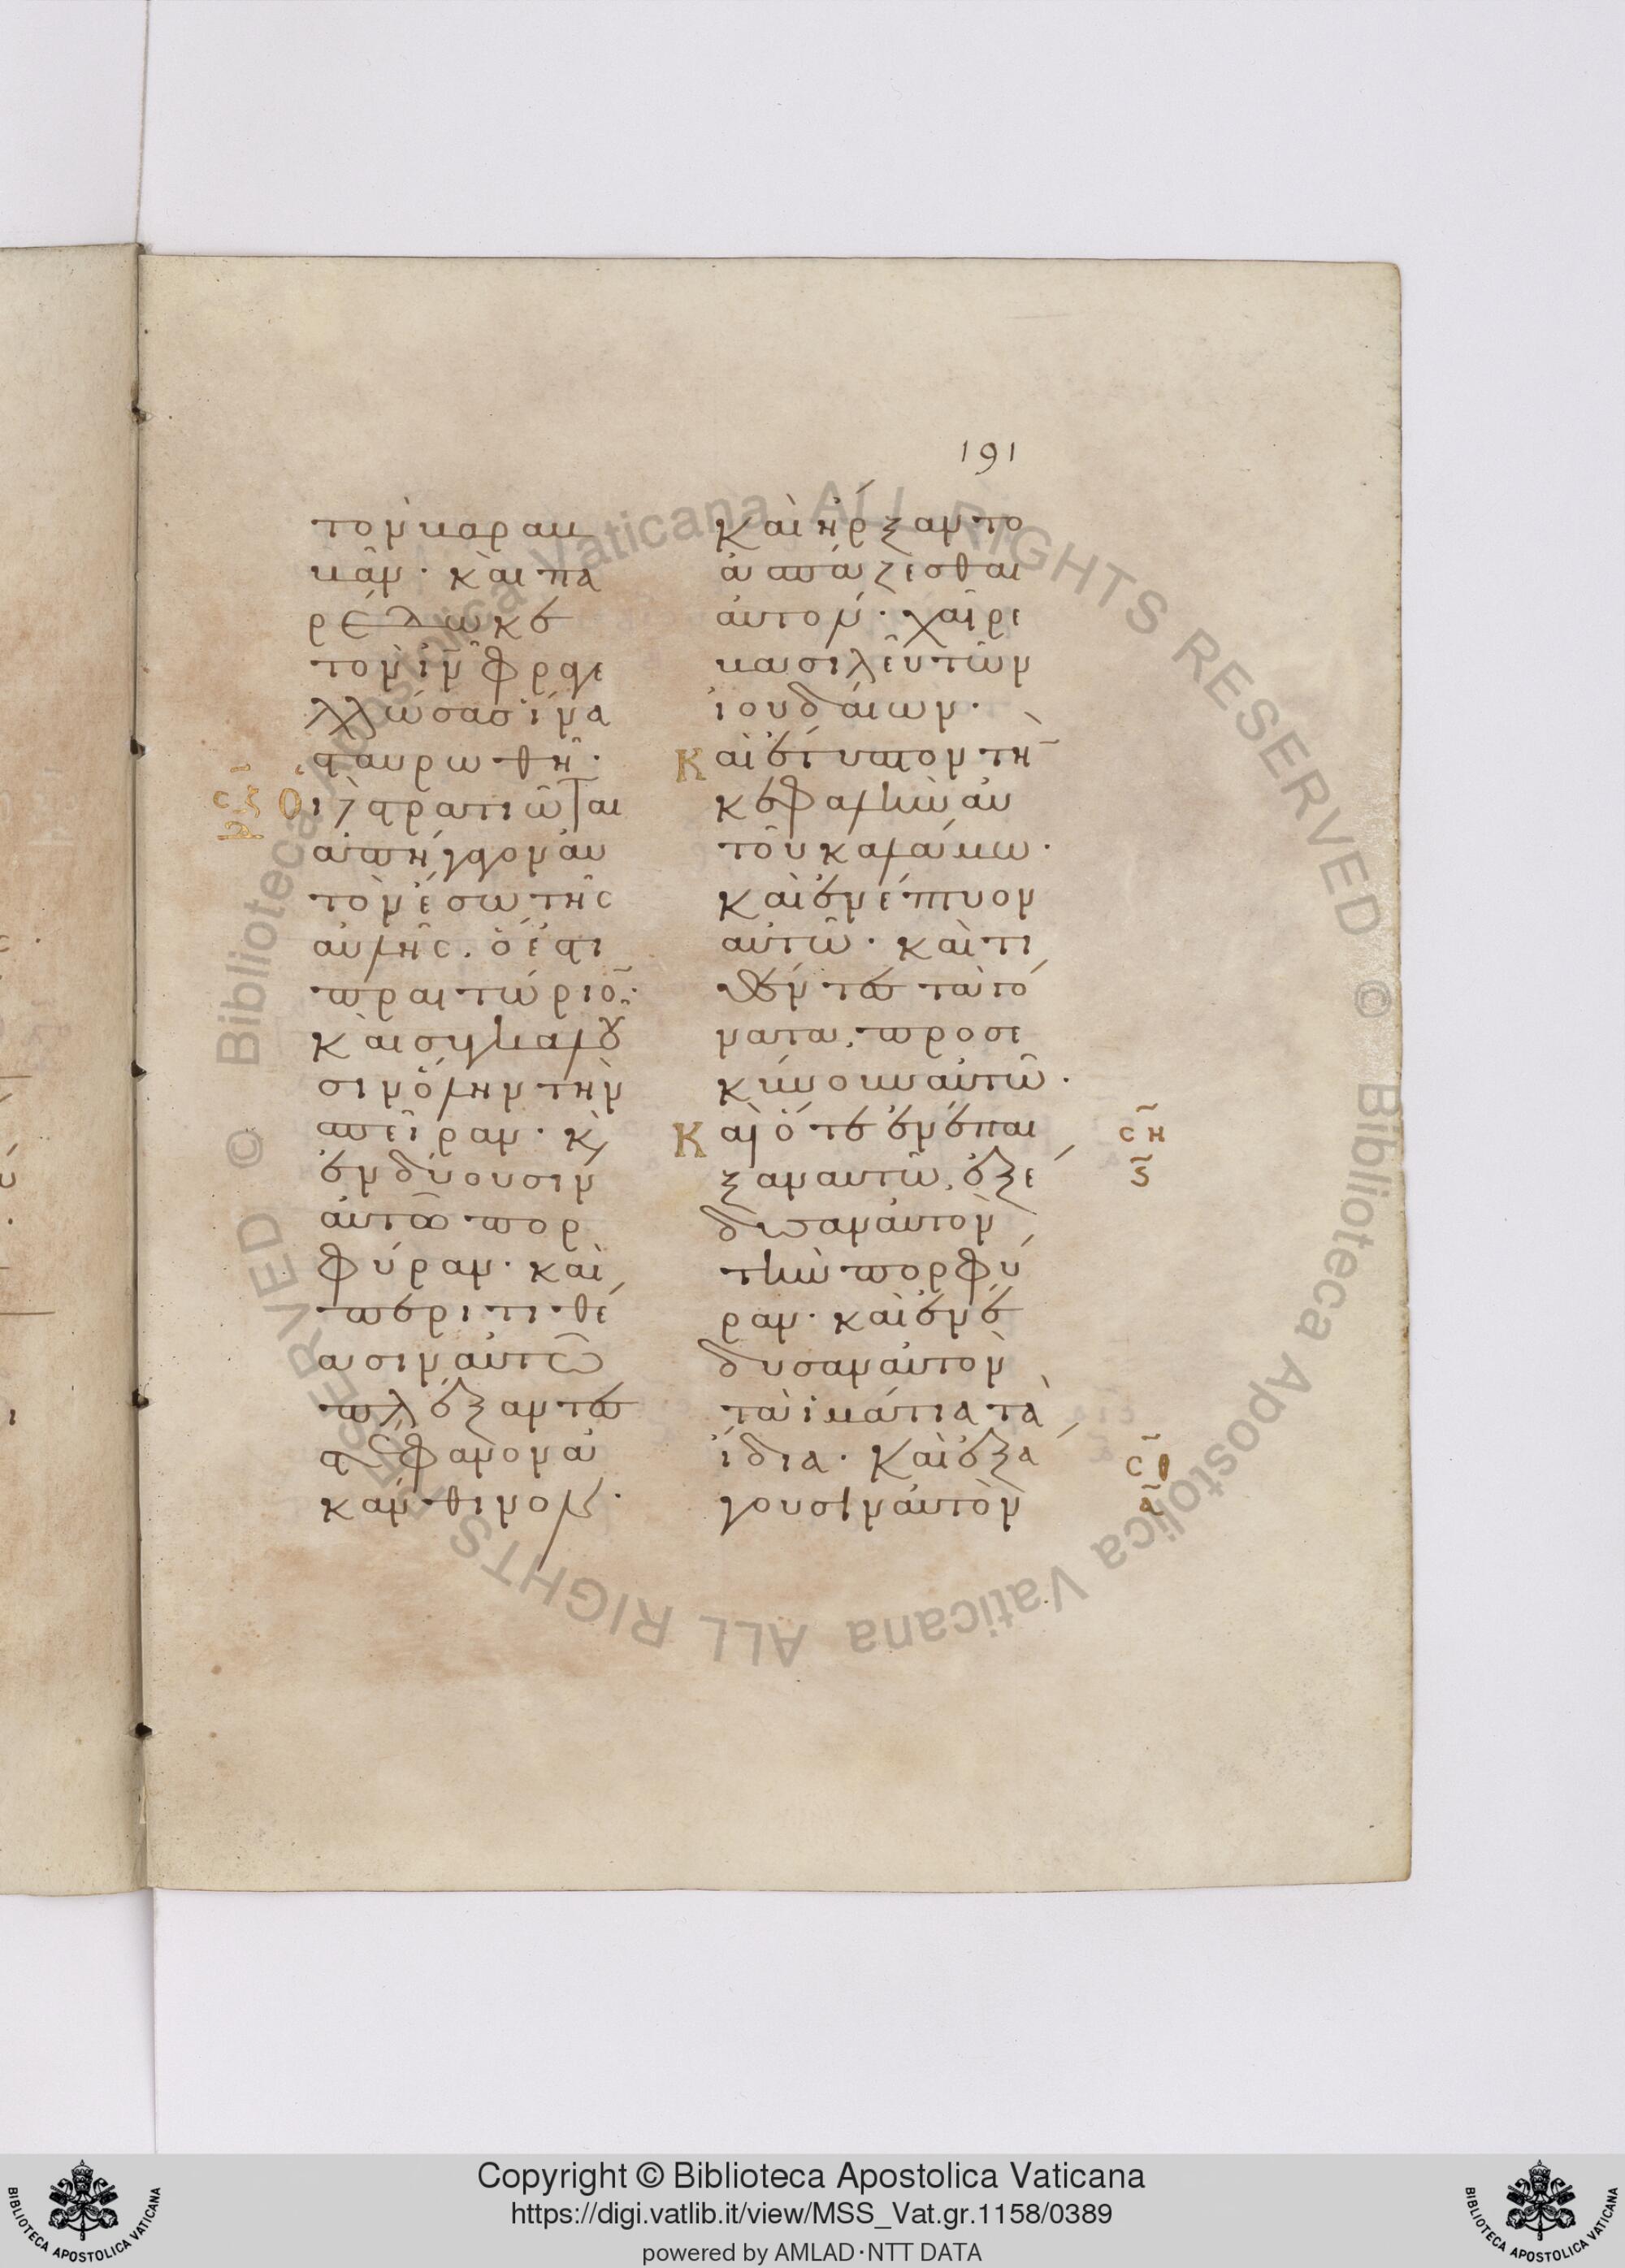 191
τὸν βαραβ
βᾶν· καὶ πα
ρέδωκε
τὸν ιν̄ φραγε
λλώσας ἵνα
σταυρωθῆ·
Οἱ στρατιῶται
ἀπήγαγον αὐ
τὸν ἔσω τῆς
αὐλῆς· ὅ ἐστι
πραιτώριο̄·
καὶ συγκαλοῦ
σιν ὅλην τὴν
σπεῖραν· κ̀
ἐνδύουσιν
αὐτὸν πορ
φύραν· καὶ
περιτιθέ
ασιν αὐτῶ
πλέξαντες
στέφανον ἀ
κάνθινον·
Καὶ ἤρξαντο
ἀσπάζεσθαι
αὐτόν· χαῖρε
βασιλεῦ τῶν
ἰουδαίων·
Καὶ ἔτυπτον τὴ̄
κεφαλὴν αὐ
τοῦ καλάμω·
καὶ ἐνέπτυον
αὐτῶ· καὶ τι
θέντες τὰ γό
νατα, προσε
κύνουν αὐτῶ·
Καὶ ὅτε ἐνέπαι
ξαν αὐτῶ, ἐξέ
δυσαν αὐτὸν
τὴν πορφύ
ραν· καὶ ἐνέ
δυσαν αὐτὸν
τὰ ἱμάτια τὰ
ἴδια· Καὶ ἐξά
γουσιν αὐτὸν
ση
ς
σθ
α
Copyright © Biblioteca Apostolica Vaticana
https://digi.vatlib.it/view/MSS_Vat.gr.1158/0389
powered by AMLAD·NTT DATA
BIBLIOTECA APOSTOLICA VATICANA
BIBLIOTECA APOSTOLICA VATICANA
© Biblioteca Apostolica Vaticana ALL RIGHTS RESERVED © Biblioteca Apostolica Vaticana ALL RIGHTS RESERVED